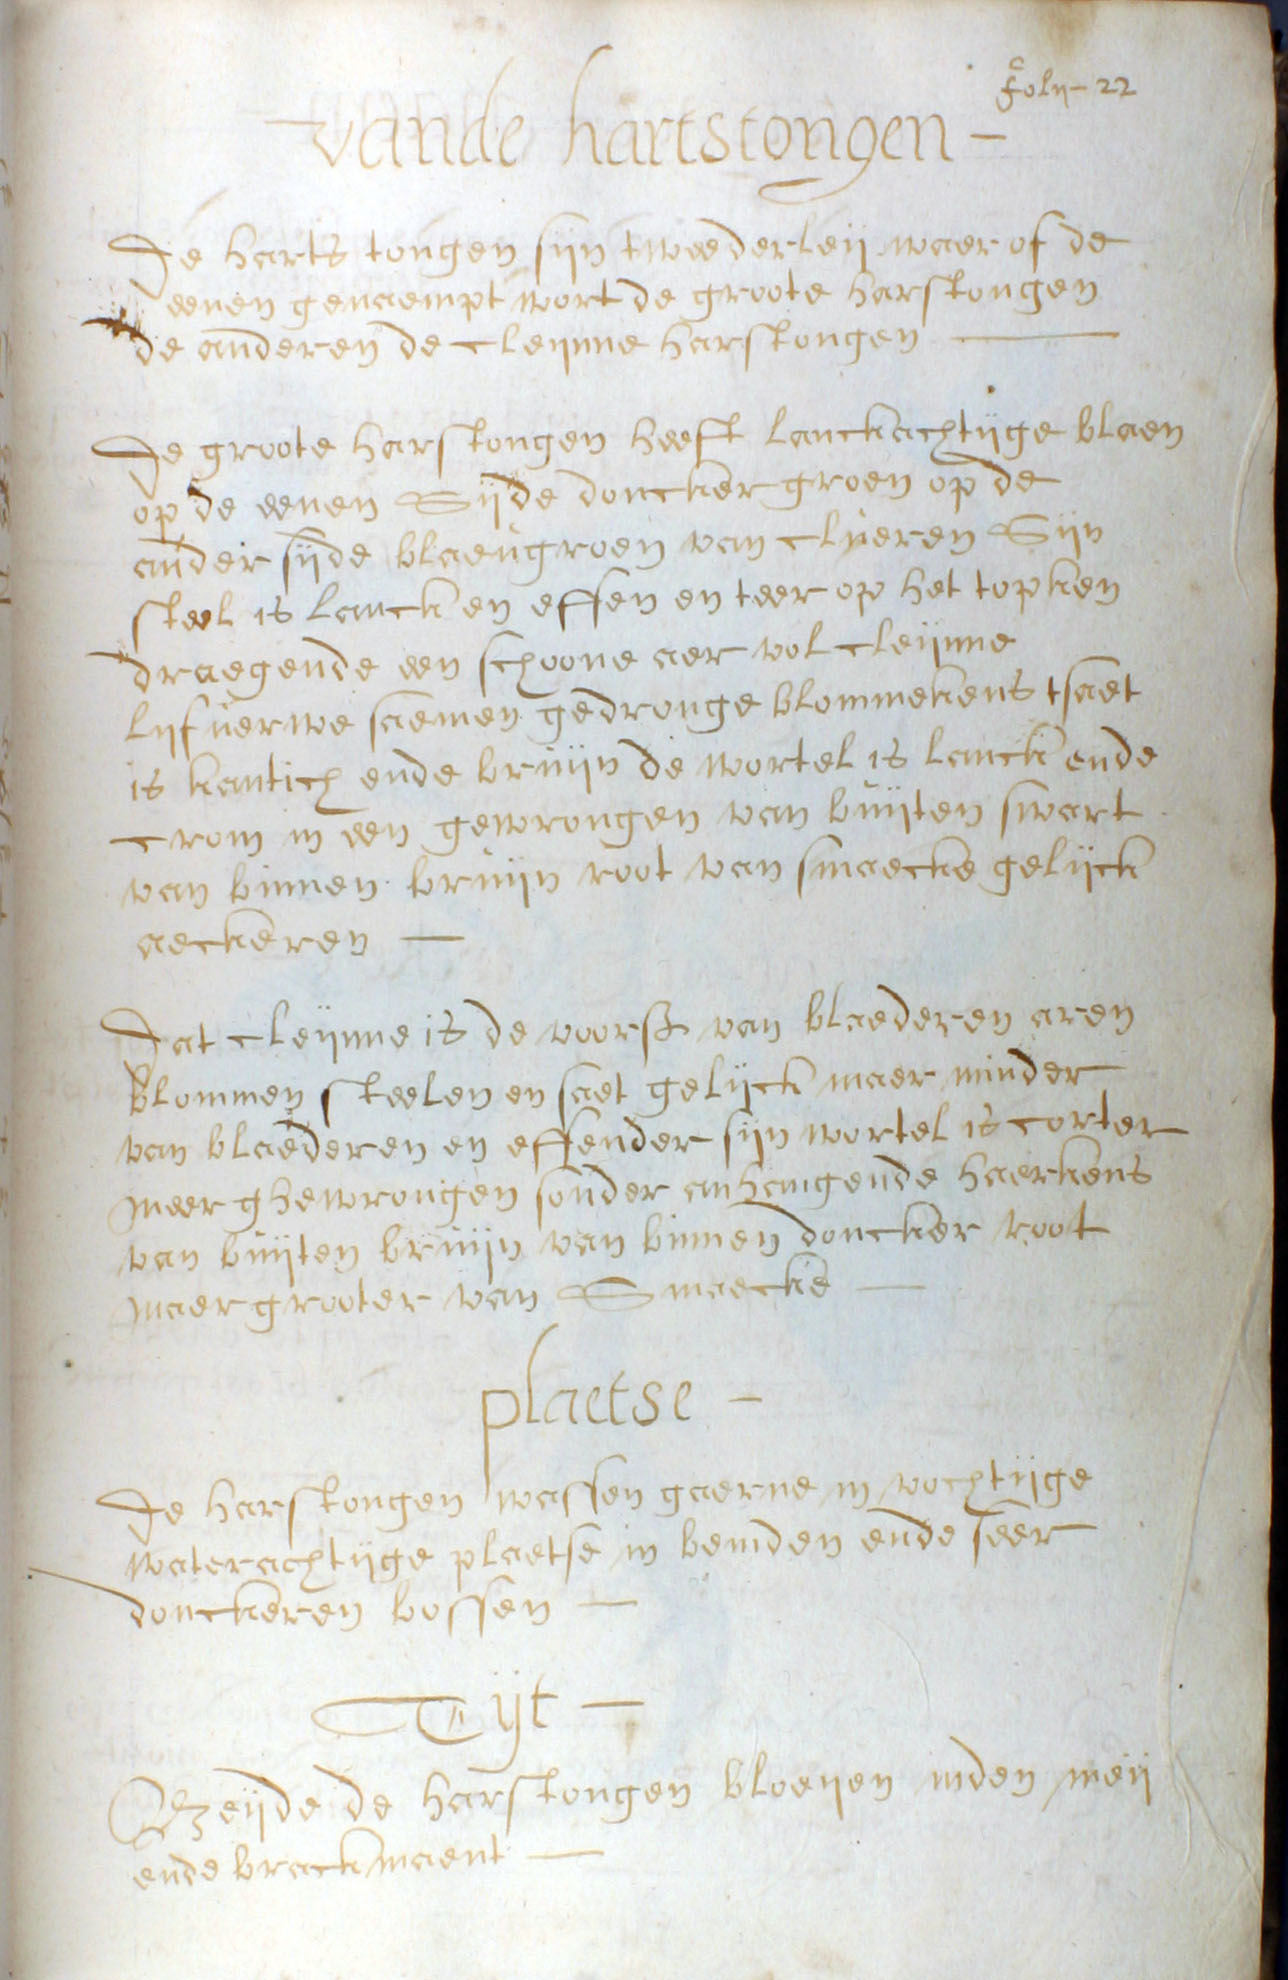 Folij - 22
vande hartstongen -
De harts tongen sijn tweederleij waer of de
eenen genaempt wort de groote harstongen
de anderen de cleijnne harstongen
De groote harstongen heeft lanckachtijge blaen
op de eenen Sijde doncker groen op de
ander sijde blaeugroen van clueren Sijn
steel is lanck en effen en teer op het topken
draegende een schoone aer vol cleijnne
lijfuerwe saemen gedronge blommekens tsaet
is kantich ende bruijn de wortel is lanck ende
crom in een gewrongen van buijten swart
van binnen bruijn root van smaecke gelijck
aeckeren -
Dat cleijnne is de voorss van blaederen aren
blommen steelen en saet gelijck maer minder
van blaederen en effender sijn wortel is corter
meer ghewrongen sonder anhangende haerkens
van buijten bruijn van binnen doncker root
maer grooter van Smaecke -
plaetse -
De harstongen wassen gaerne in vochtijge
waterachtijge plaetse in bemden ende seer
donckeren bossen -
Tijt -
Beijde de harstongen bloeijen inden meij
ende brackmaent -